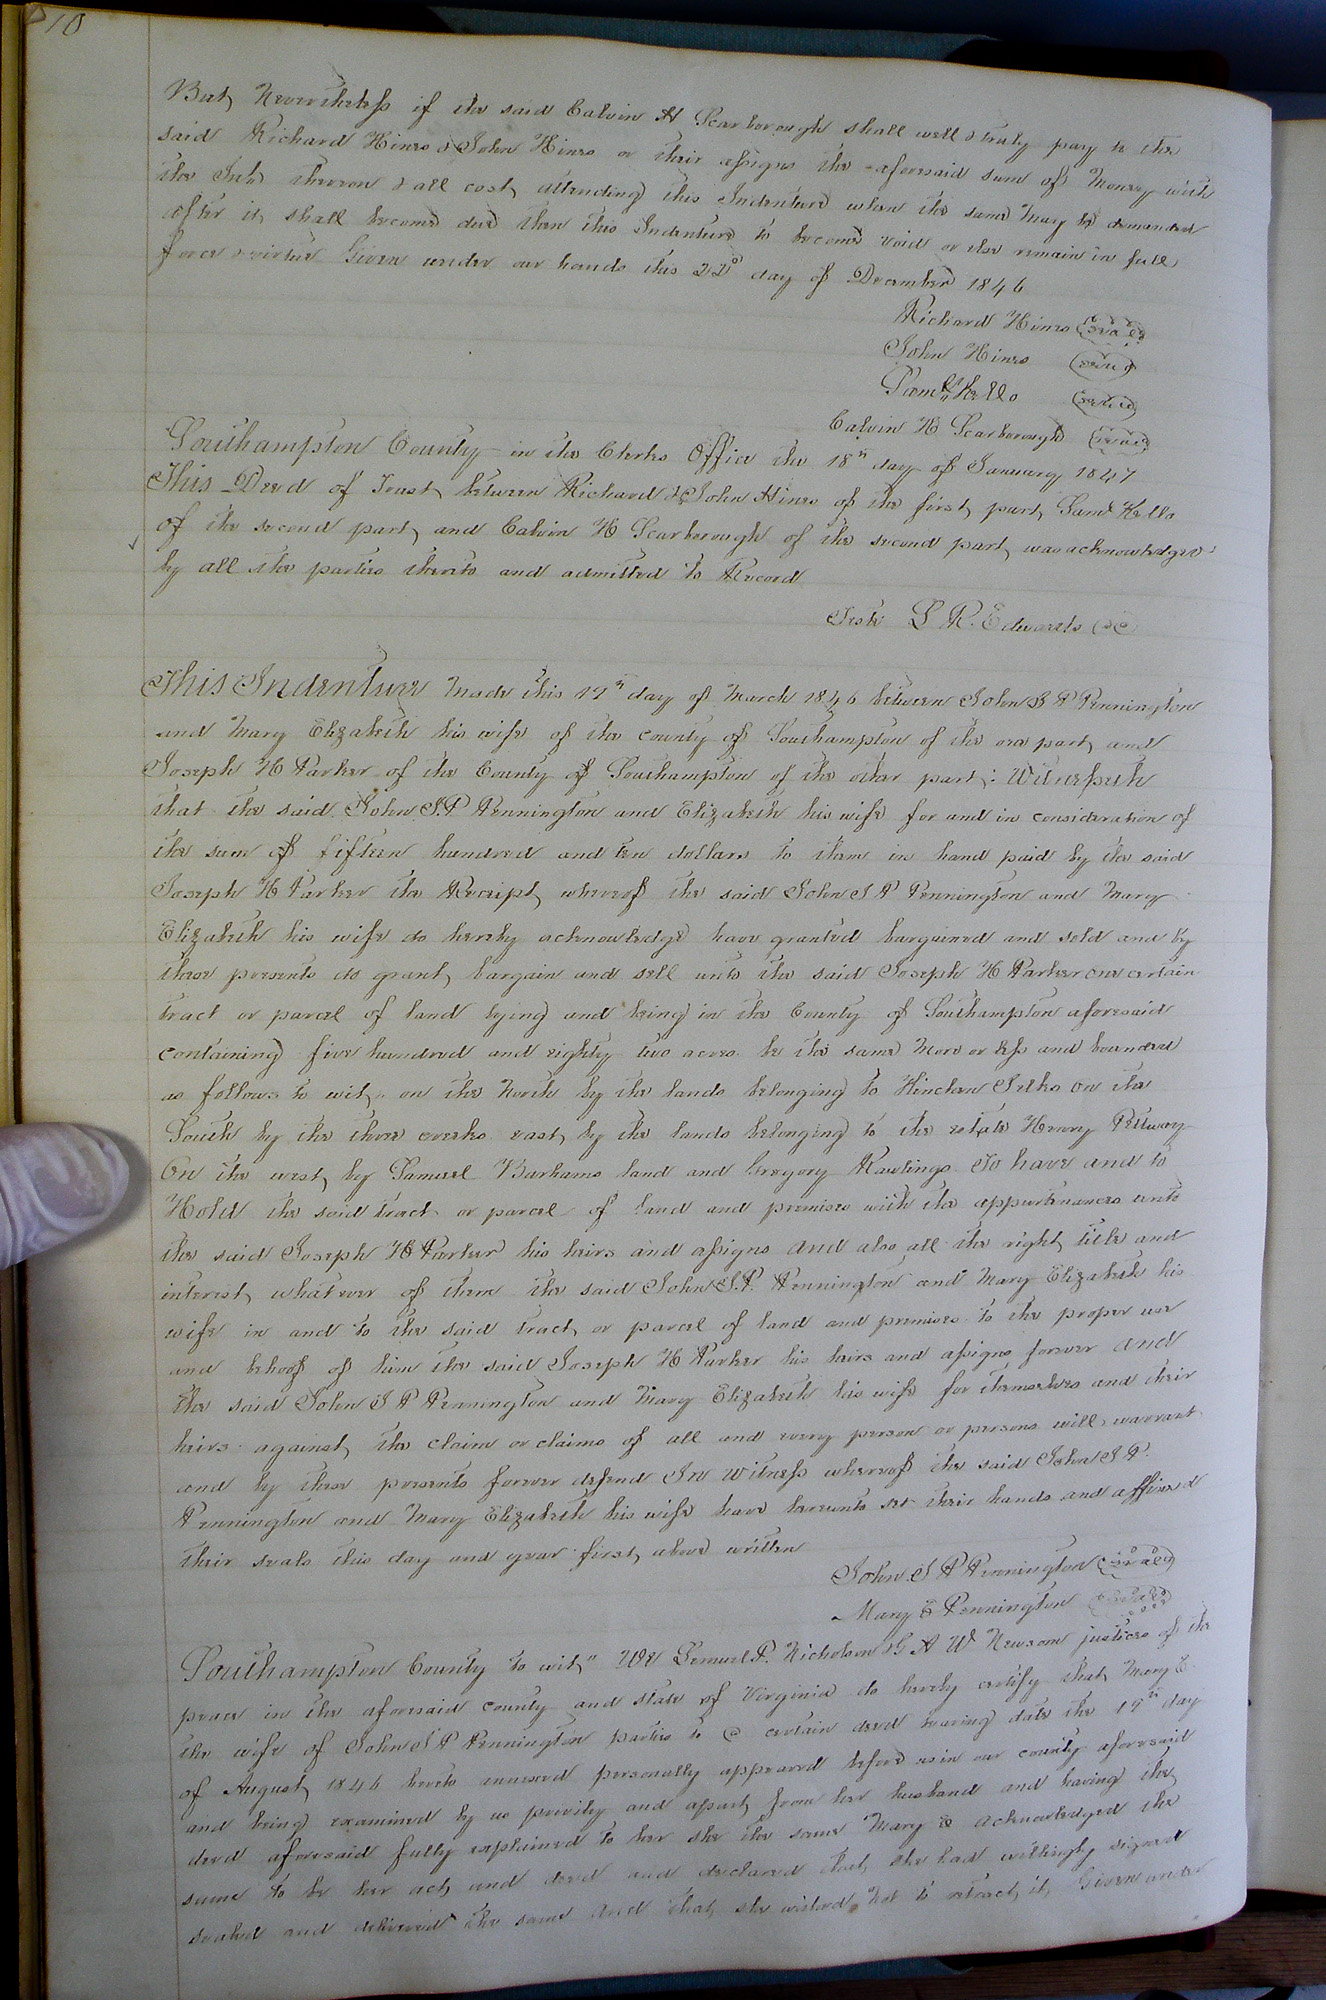 10
But, Nevertheless if the said Calvin H Scarborough shall well & truly pay to the
said Richard Hines & John Hines or their assigns the aforesaid sum of Money with
the Int, thereon & all cost, attending this Indenture when the same may be demanded
after it, shall become due then this Indenture to become void or else remain in full
force & virtue Given under our hands this 22d day of December 1846
Richard Hines (seal)
John Hines (seal)
Saml Kello (seal)
Calvin H Scarborough (seal)
Southampton County in the Clerks Office the 18th day of January 1847
This Deed of Trust, between Richard & John Hines of the first, part, Saml Kello
of the second part, and Calvin H Scarborough of the second part, was acknowledged
by all the parties thereto and admitted to Record
Teste L R. Edwards CSC
This Indenture Made this 17th day of March 1846 between John S P Pennington
and Mary Elizabeth his wife of the county of Southampton of the one part, and
Joseph H Parker of the County of Southampton of the other part: Witnesseth
that the said John S.P Pennington and Elizabeth his wife for and in consideration of
the sum of fifteen hundred and ten dollars to them in hand paid by the said
Joseph H Parker the Receipt, whereof the said John S P Pennington and Mary
Elizabeth his wife do hereby acknowledge have granted bargained and sold and by
these presents do grant, bargain and sell unto the said Joseph H Parker one certain
tract or parcel of land lying and being in the County of Southampton aforesaid
containing five hundred and eighty two acres be the same More or less and bounded
as follows to wit, on the North by the lands belonging to Hinchen on the
South by the three creeks east, by the lands belonging to the estate Henry Pettway
On the west, by Samuel Barhams land and Gregory Rawlings To have and to
Hold the said tract or parcel of land and premises with the appurtenances unto
the said Joseph H Parker his heirs and assigns and also all the right, title and
interest, whatever of them the said John S.P. Pennington and Mary Elizabeth his
wife in and to the said tract, or parcel of land and premises to the proper use
and behoof of him the said Joseph H Parker his heirs and assigns forever and
the said John S P Pennington and Mary Elizabeth his wife for themselves and their
heirs against, the claim or claims of all and every person or persons will warrant
and by these presents forever defend In Witness whereof the said John S P.
Pennington and Mary Elizabeth his wife have hereunto set their hands and affixed
their seals this day and year first, above written
John S P Pennington (seal)
Mary E Pennington (seal)
Southampton County to wit," We Lemuel P. Nicholson & G A W Newsom justices of the
peace in the aforesaid county and state of Virginia do hereby certify that, Mary E.
the wife of John S P Pennington parties to a certain deed bearing date the 17th day
of August, 1846 hereto annexed personally appeared before us in our county aforesaid
and being examined by us privily and apart, from her husband and having the
deed aforesaid fully explained to her she the same Mary E acknowledged the
same to be her act, and deed and declared that, she had willingly signed
sealed and delivered the same and that, she wished, not to retract, it, Given under